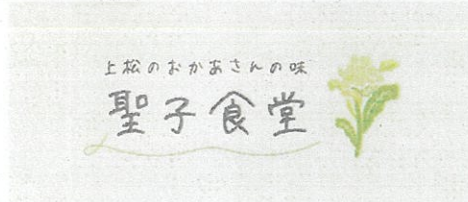 上松のおかあさんの味
聖子食堂